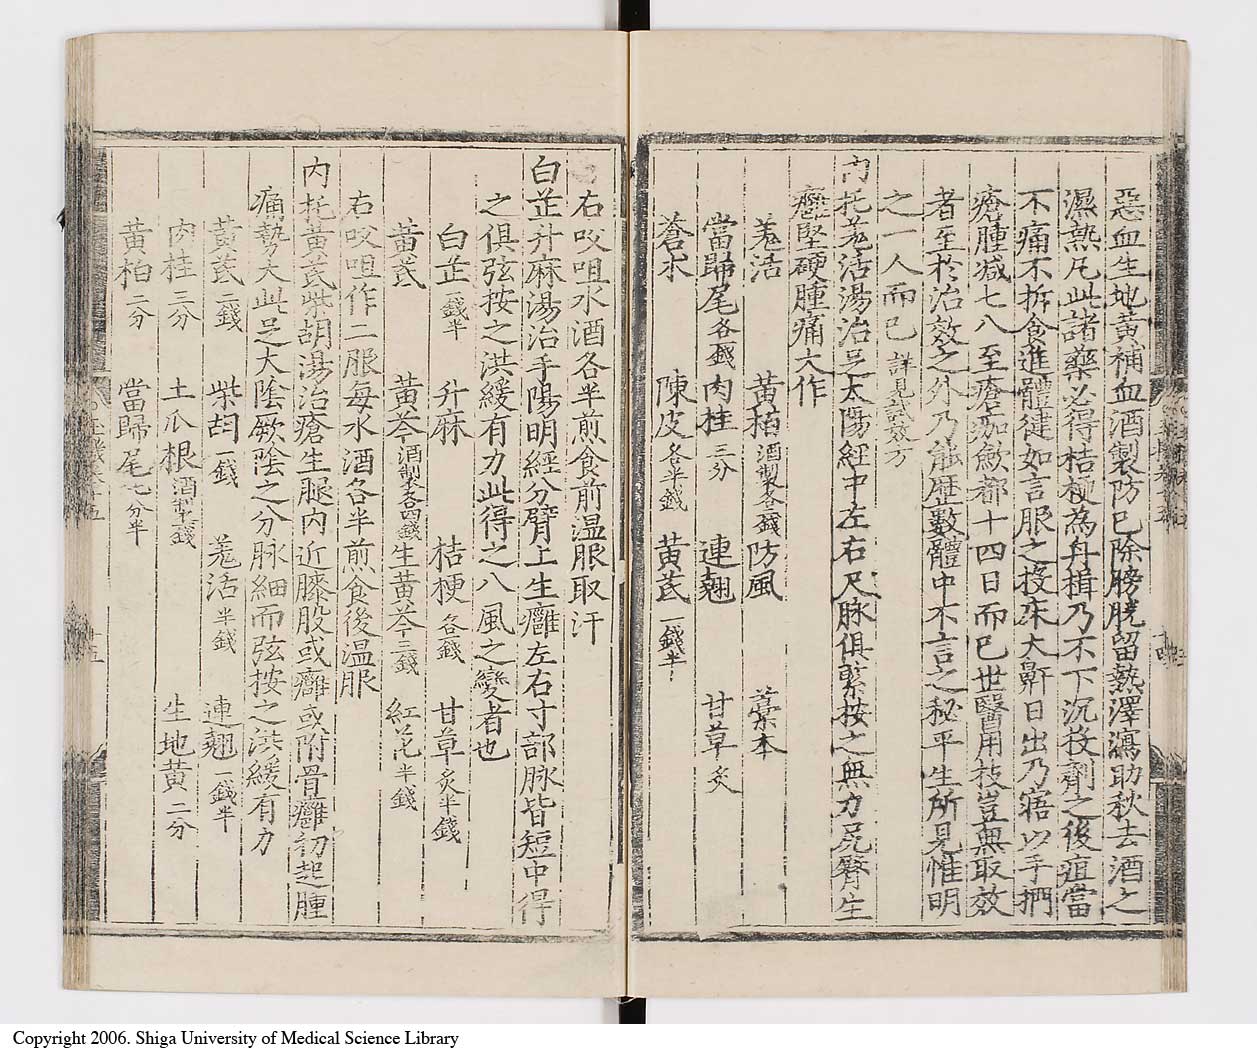 惡血生地黃補血酒製防已除膀胱留熱澤瀉助秋去酒之
濕熱凡此諸藥必得桔梗為舟楫乃不下沉投劑之後疽當
不痛不拆食進體健如言服之投床大鼾日出乃寤以手捫
瘡腫减七八至瘡痂歛都十四日而已世醫用技豈無取效
者至於治效之外乃能歴數體中不言之秘平生所見惟明
之一人而已詳見試效方
內托羗活湯治足太陽經中左右尺脉俱緊按之無力尻臀生
癰堅硬腫痛大作
羗活 黃栢酒製各二錢 防風 藁本
當歸尾各一錢 肉桂三分 連翹 甘草炙
蒼朮 陳皮各半錢 黃芪一錢半
右㕮咀水酒各半煎食前温服取汗
白芷升麻湯治手陽明經分臂上生癰左右寸部脉皆短中得
之俱弦按之洪緩有力此得之八風之變者也
白芷一錢半 升麻 桔梗各一錢 甘草炙半錢
黃芪 黃芩酒製各四錢 生黃芩三錢 紅花半錢
右㕮咀作二服每水酒各半煎食後温服
內托黃芪柴胡湯治瘡生腿內近膝股或癰或附骨癰初起腫
痛勢大此足太陰厥陰之分脉細而弦按之洪緩有力
黃芪二錢 柴胡一錢 羗活半錢 連翹一錢半
肉桂三分 土瓜根酒製一錢 生地黃二分
黃栢二分 當歸尾七分半
十五
Copyright 2006. Shiga University of Medical Science Library